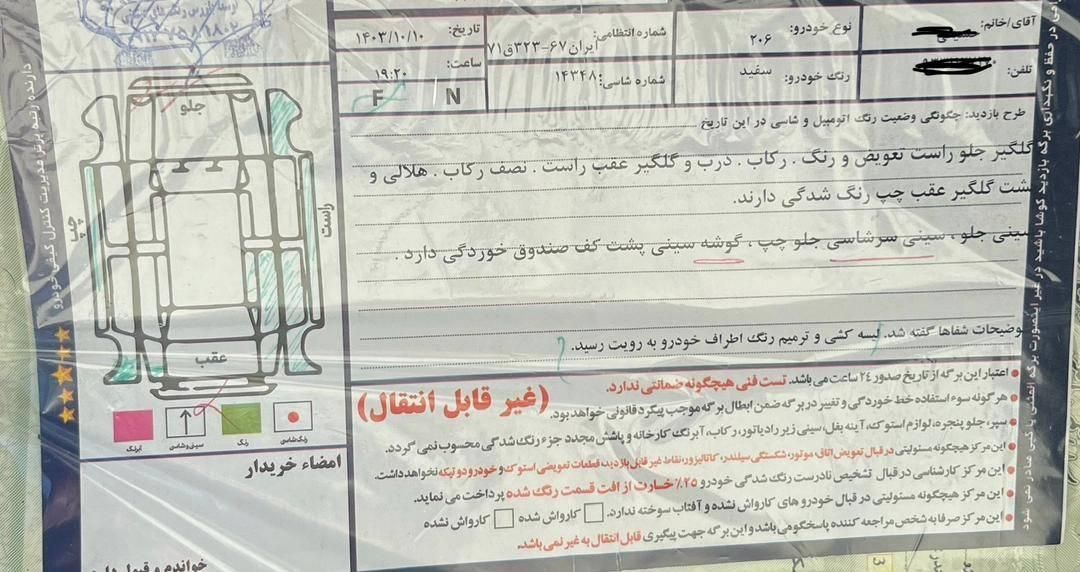 آقای/خانم:
نوع خودرو: ۲۰۶
شماره انتظامی: ایران۶۷-۳۲۳ق۷۱
تاریخ: ۱۴۰۳/۱۰/۱۰
تلفن:
رنگ خودرو: سفید
شماره شاسی: ۱۴۳۴۸
ساعت: ۱۹:۲۰
F / N
طرح بازدید: چگونگی وضعیت رنگ اتومبیل و شاسی در این تاریخ
گلگیر جلو راست تعویض و رنگ . رکاب . درب و گلگیر عقب راست . نصف رکاب . هلالی و
پشت گلگیر عقب چپ رنگ شدگی دارند.
سینی جلو ، سینی سرشاسی جلو چپ ، گوشه سینی پشت کف صندوق خوردگی دارد .
توضیحات شفاها گفته شد. لیسه کشی و ترمیم رنگ اطراف خودرو به رویت رسید.
جلو
چپ
راست
عقب
رنگ‌شاسی
رنگ
سینی‌وشاسی
آبرنگ
امضاء خریدار
خواندم و قبول دارم
• اعتبار این برگه از تاریخ صدور ۲۴ ساعت می باشد. تست فنی هیچگونه ضمانتی ندارد.
(غیر قابل انتقال)
• هر گونه سوء استفاده خط خوردگی و تغییر در برگه ضمن ابطال برگه موجب پیگرد قانونی خواهد بود.
• سپر، جلو پنجره، لوازم استوک، آینه بغل، سینی زیر رادیاتور، رکاب، آبرنگ کارخانه و پاشش مجدد جزء رنگ شدگی محسوب نمی گردد.
• این مرکز هیچگونه مسئولیتی در قبال تعویض اتاق، موتور، شکستگی سیلندر، کاتالیزور، نقاط غیر قابل بازدید، قطعات تعویضی استوک و خودرو دو تیکه نخواهد داشت.
• این مرکز کارشناسی در قبال تشخیص نادرست رنگ شدگی خودرو ۲۵٪ خسارت از افت قسمت رنگ شده پرداخت می نماید.
• این مرکز هیچگونه مسئولیتی در قبال خودرو های کارواش نشده و آفتاب سوخته ندارد. کارواش شده کارواش نشده
• این مرکز صرفا به شخص مراجعه کننده پاسخگو می باشد و این برگه جهت پیگیری قابل انتقال به غیر نمی باشد.
دارنده رتبه برتر مدیریت کنترل کیفی خودرو
در حفظ و نگهداری برگه بازدید کوشا باشید در غیر اینصورت برگه المثنی یا کپی صادر نمی شود